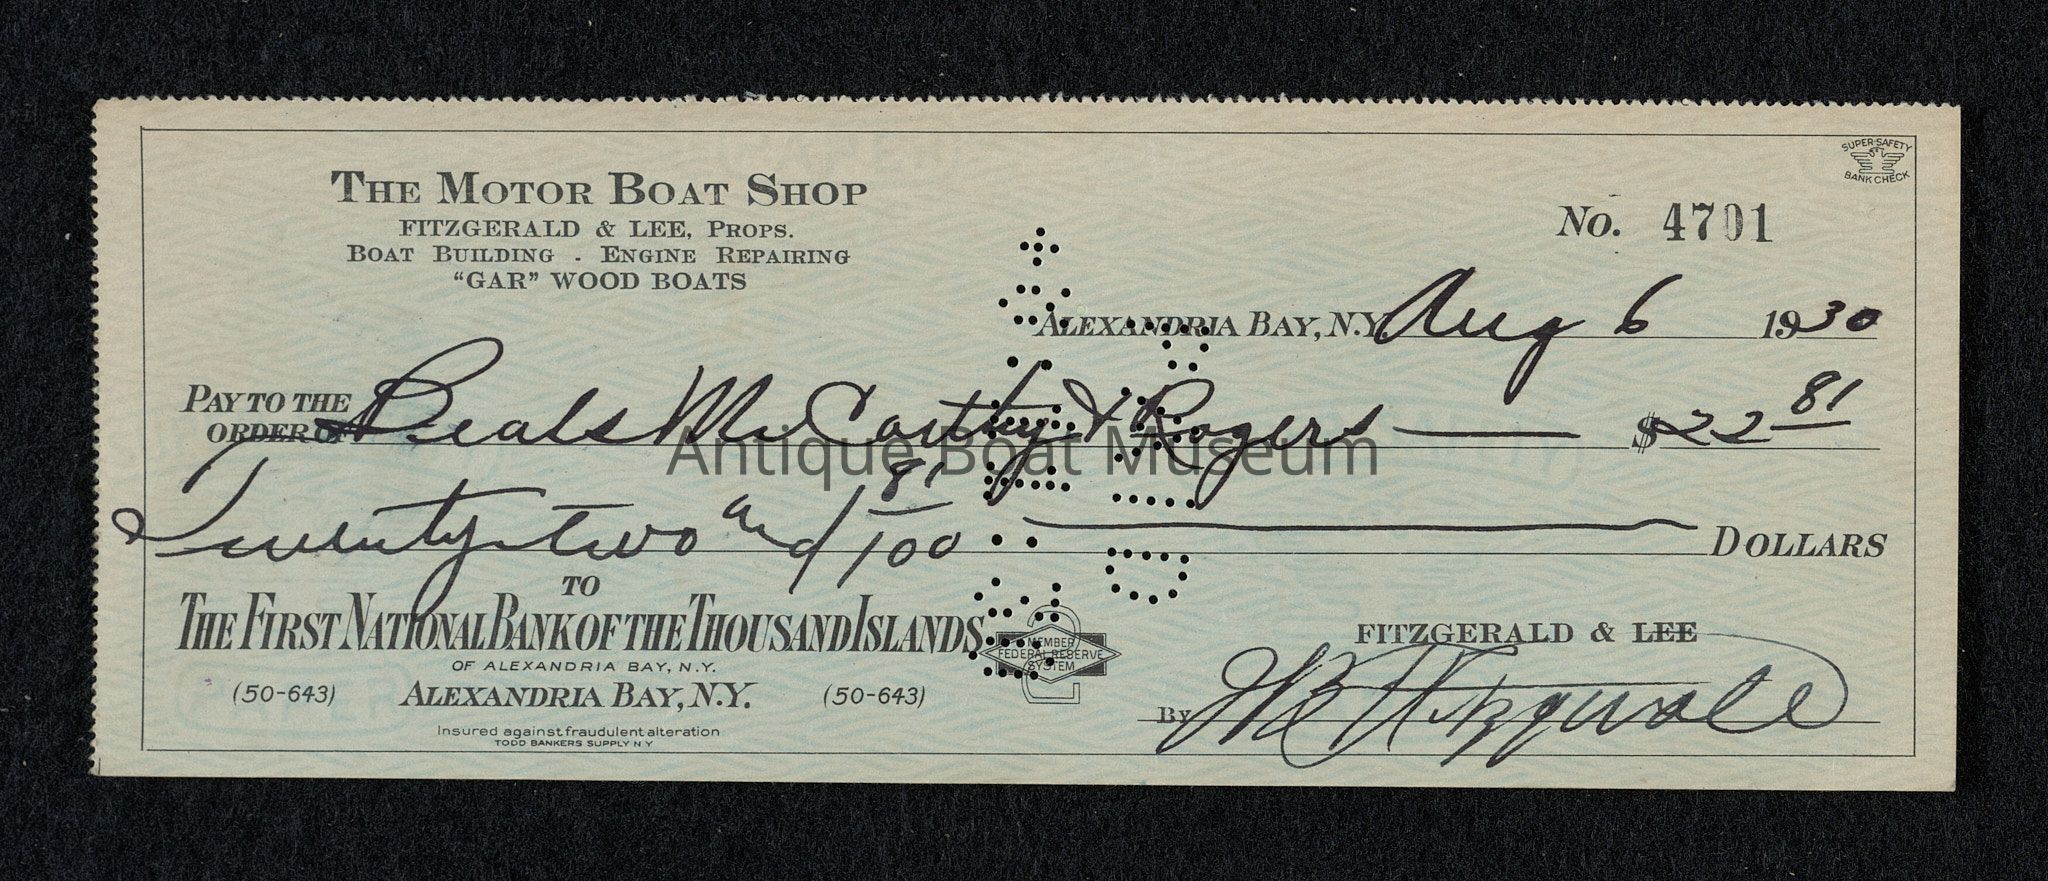 SUPER-SAFETY
BANK CHECK
THE MOTOR BOAT SHOP
FITZGERALD & LEE, PROPS.
BOAT BUILDING - ENGINE REPAIRING
"GAR" WOOD BOATS
No. 4701
ALEXANDRIA BAY, N.Y. Aug 6 1930
PAY TO THE
ORDER OF Beals McCarthy & Rogers $22 81
Antique Boat Museum
Twenty-two and 81/100 DOLLARS
TO
THE FIRST NATIONAL BANK OF THE THOUSAND ISLANDS
OF ALEXANDRIA BAY, N.Y.
(50-643) ALEXANDRIA BAY, N.Y. (50-643)
MEMBER
FEDERAL RESERVE
SYSTEM
2
Insured against fraudulent alteration
TODD BANKERS SUPPLY N Y
FITZGERALD & LEE
By Fitzgerald